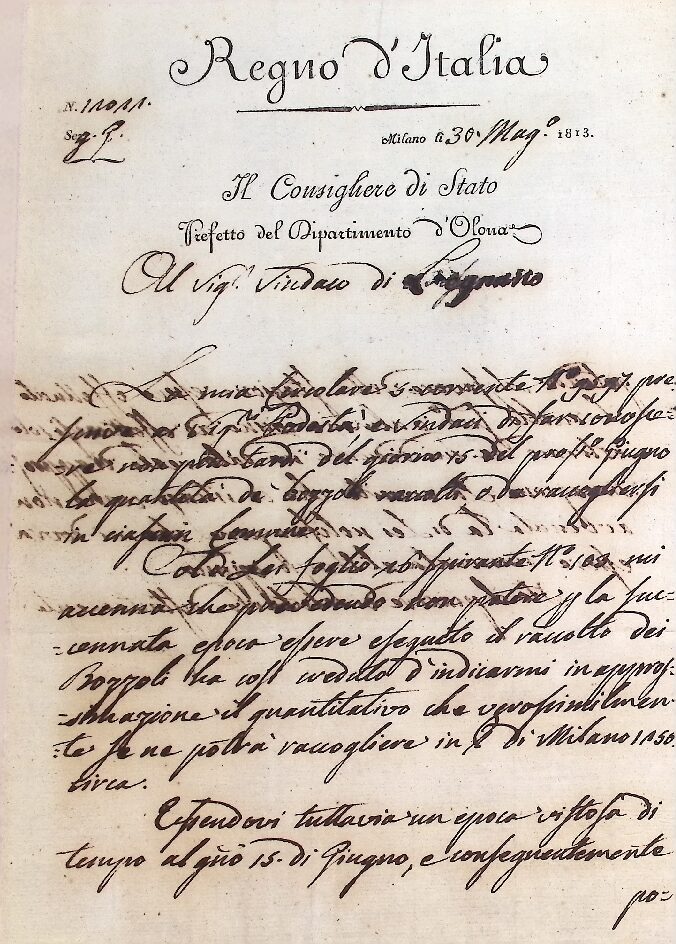 Regno d'Italia
N. 11011.
Sez.
Milano li 30. Mag.º 1813.
Il Consigliere di Stato
Prefetto del Dipartimento d'Olona
Al Sig.r Sindaco di Legnaito
La mia circolare 3. corrente N.º pre=
Sigri Podestà e Sindaci di far conosce=
=re non più tardi del giorno 15. del pross.º Giugno
la quantità de' bozzoli raccolti o da raccogliersi
in ciascun Comune.
Colei foglio 26 spirante N.º 103 mi
accenna che prevedendo non potere p la suc=
=cennata epoca essere eseguito il raccolto dei
Bozzoli ha così creduto d'indicarmi in appros=
=simazione il quantitativo che verosimilmen=
=te se ne potrà raccogliere in di Milano 1150.
circa.
Essendovi tuttavia un epoca vistosa di
tempo al gño 15. di Giugno, e conseguentemente
po=